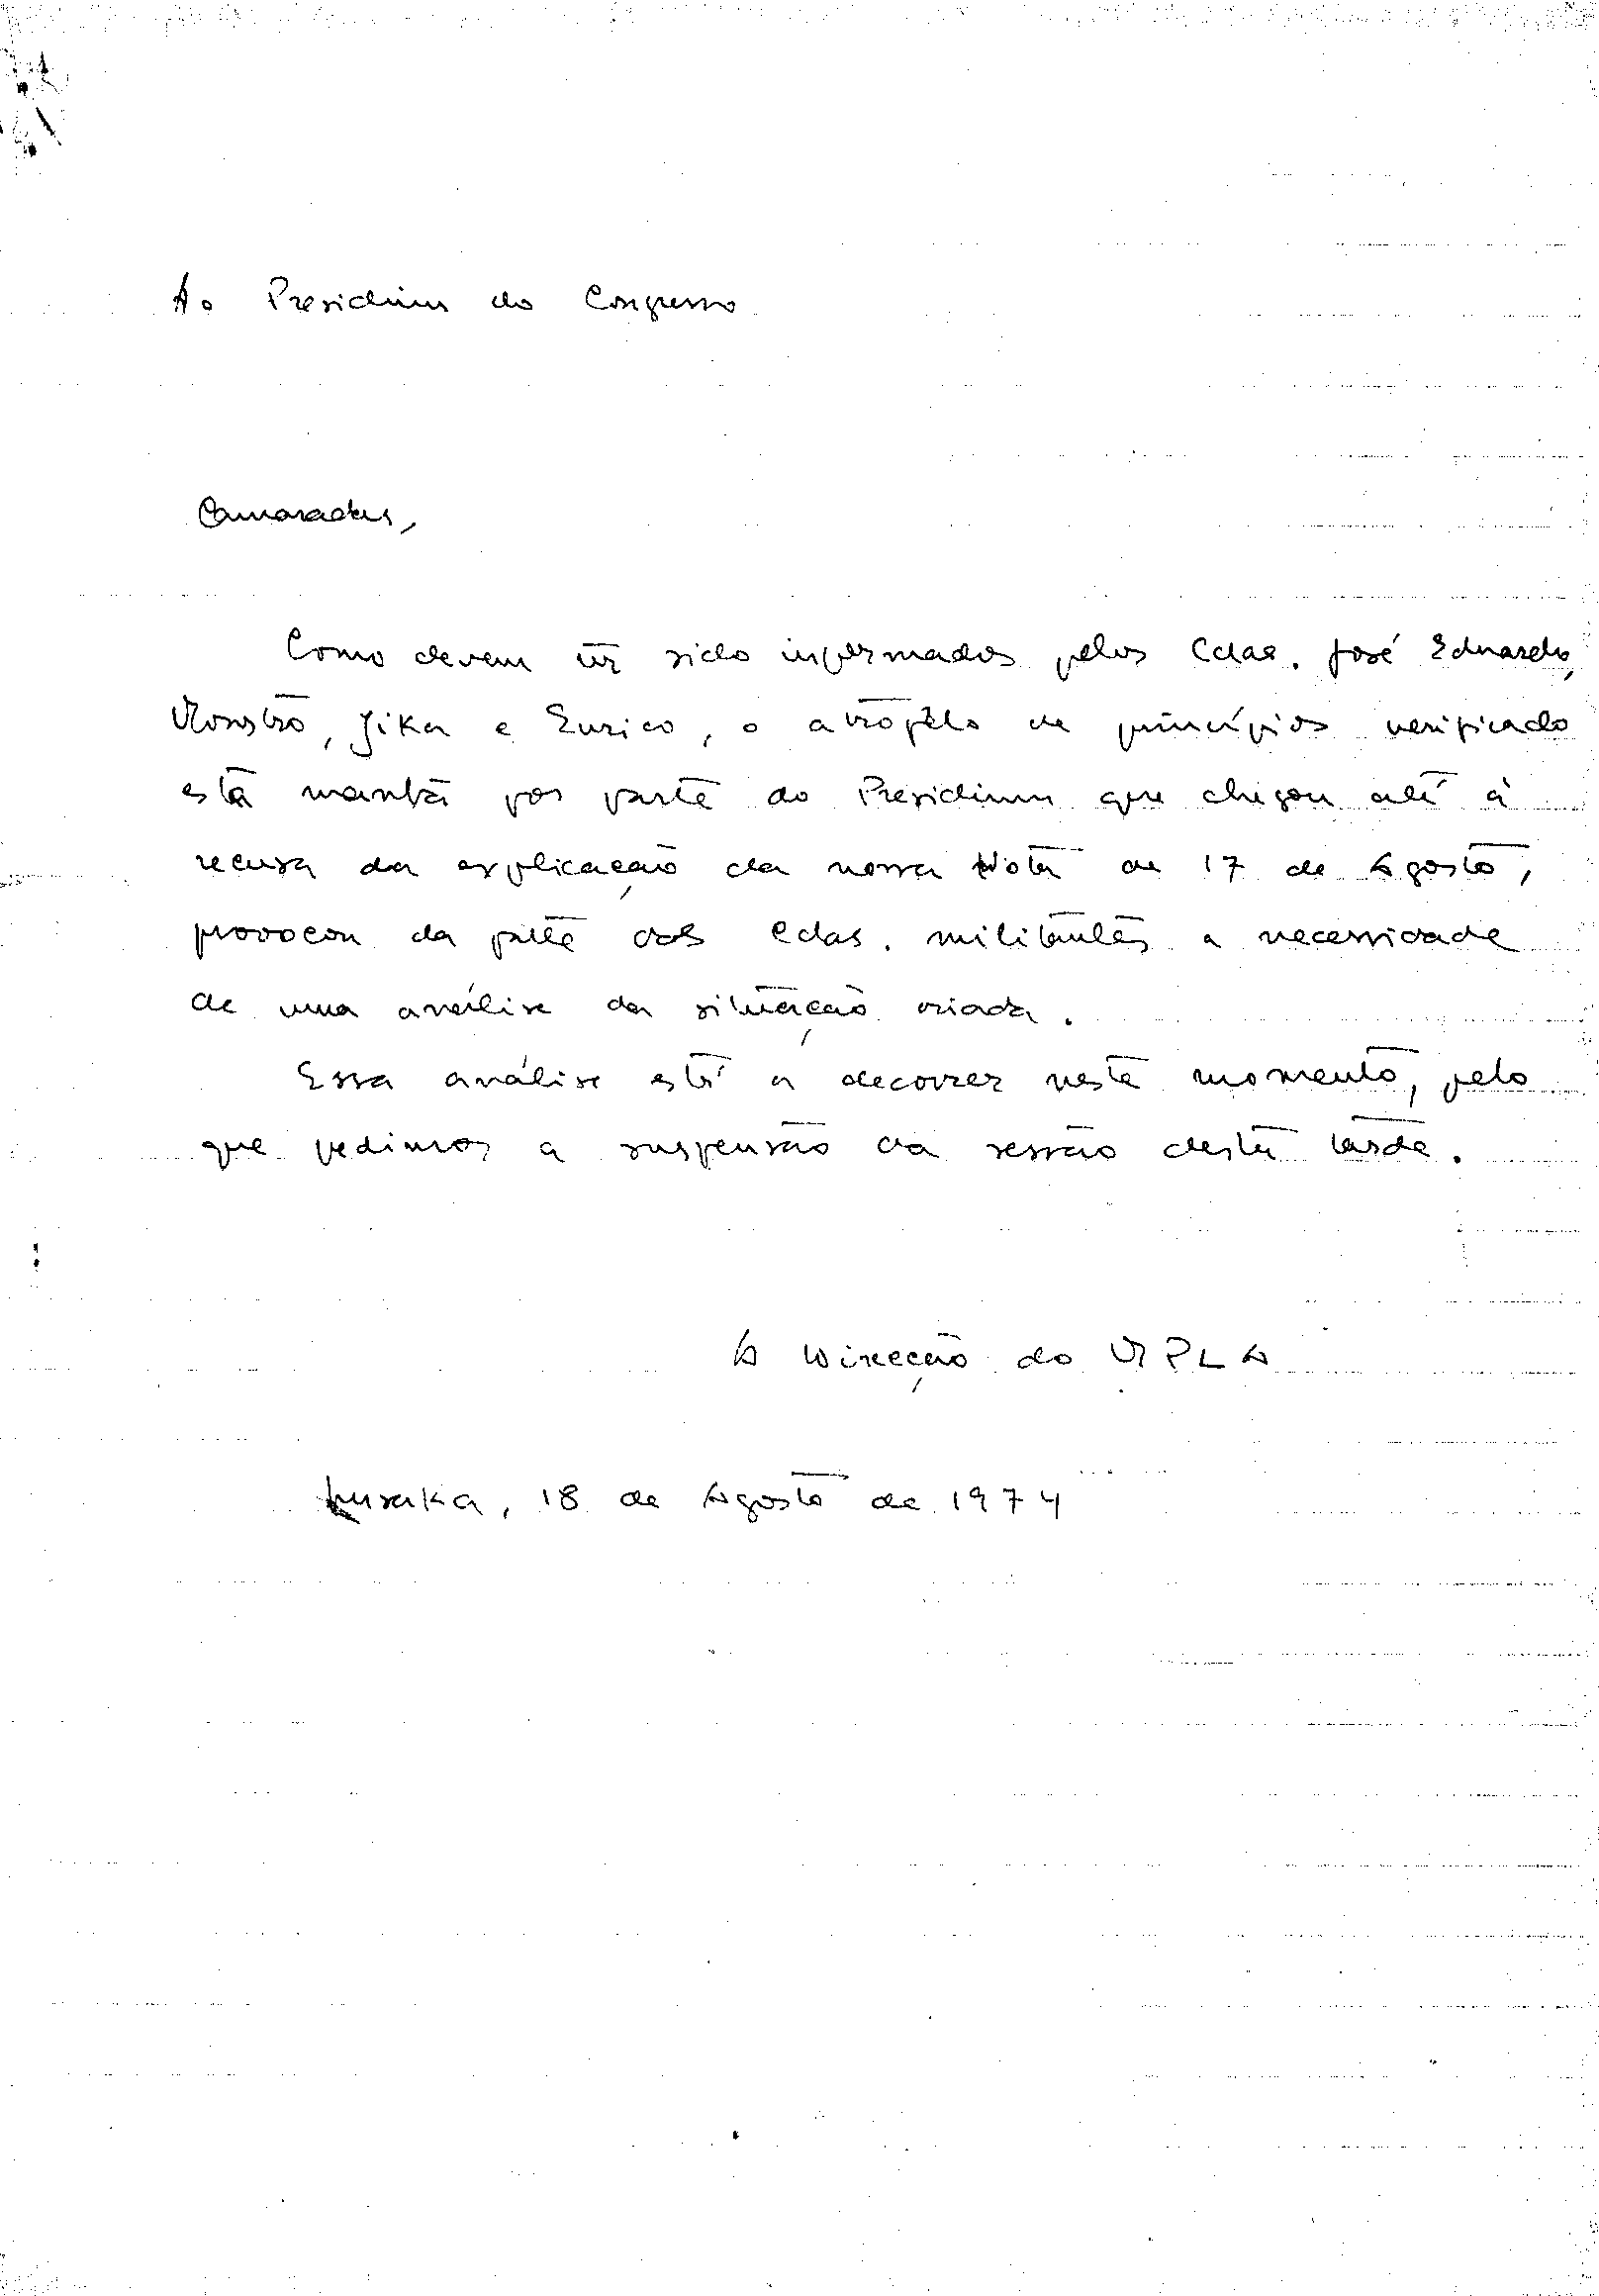 Ao Presidium do Congresso
Camaradas,
Como devem ter sido informados pelos Cdas. José Eduardo,
Monstro, Jika e Eurico, o atropêlo de princípios verificado
esta manhã por parte do Presidium que chegou até à
recusa da explicação da nossa Nota de 17 de Agosto,
provocou da parte dos Cdas. militantes a necessidade
de uma análise da situação criada.
Essa análise está a decorrer neste momento, pelo
que pedimos a suspensão da sessão desta tarde.
A Direcção do MPLA
Lusaka, 18 de Agosto de 1974